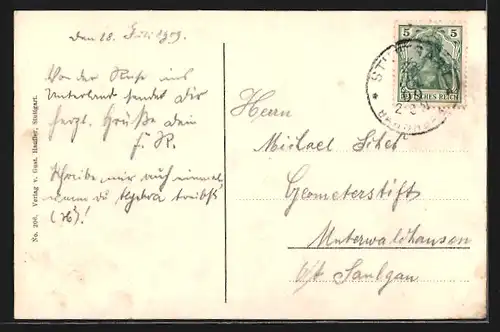 den 18. Juli 1909.
Von der Reise ins
Unterland sendet Dir
herzl. Grüße dein
F. R.
Schreibe mir auch einmal
wenn du Algebra treibst
No. 206. Verlag v. Gust. Haufler, Stuttgart.
5 5
DEUTSCHES REICH
Herrn
Michael
Geometerstift
Unterwaldhausen
b/ Saulgau